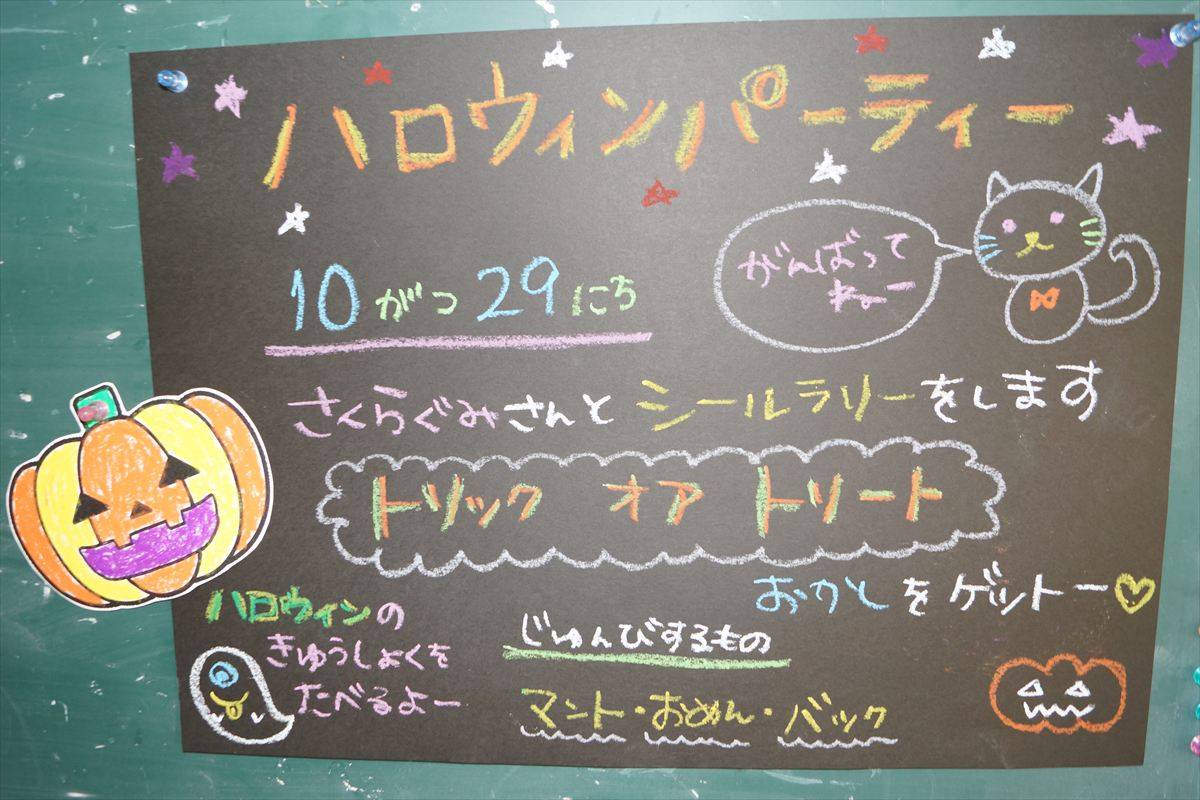 ハロウィンパーティー
がんばって
ねー
10がつ29にち
さくらぐみさんとシールラリーをします
トリック オア トリート
おかしをゲットー♡
ハロウィンの
きゅうしょくを
たべるよー
じゅんびするもの
マント・おめん・バック